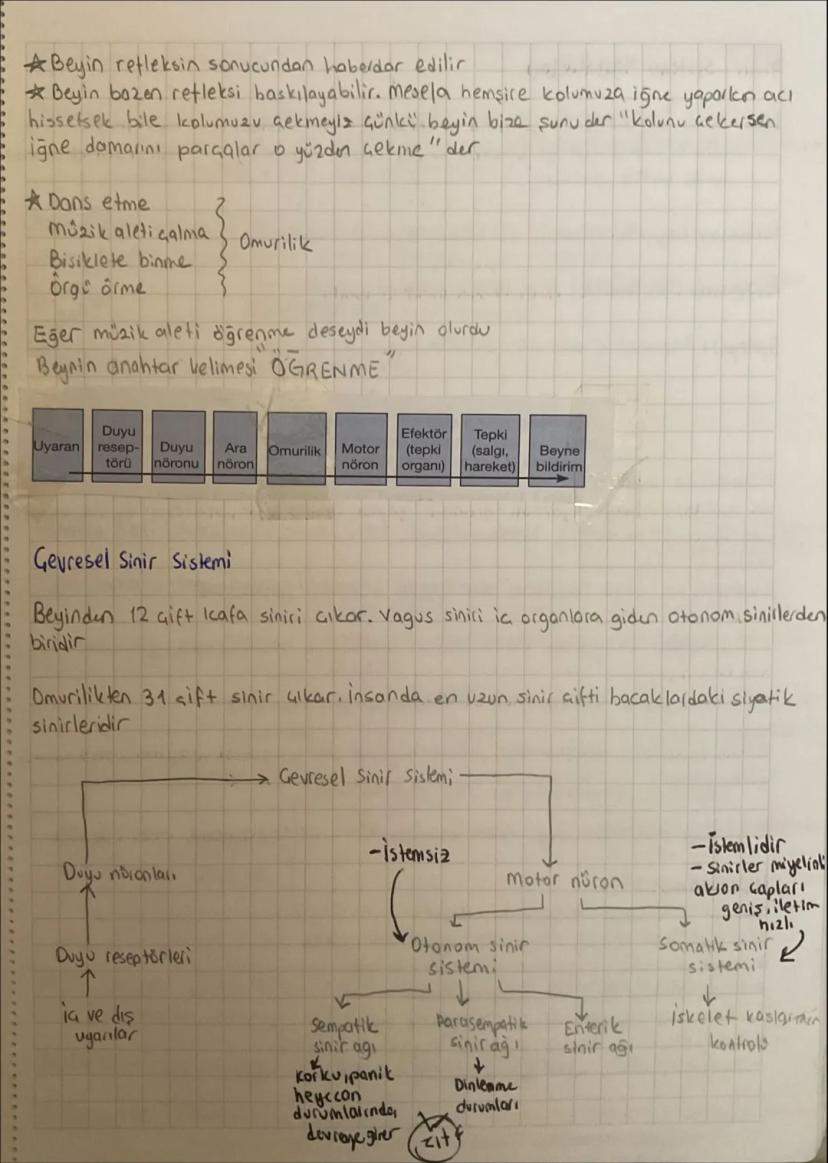 ★ Beyin refleksin sonucundan haberdar edilir
★ Beyin bazen refleksi baskılayabilir. Mesela hemşire kolumuza iğne yaparken acı
hissetsek bile kolumuzu çekmeyiz çünkü beyin bize şunu der "kolunu çekersen
iğne damarını parçalar o yüzden çekme" der
★ Dans etme
Müzik aleti çalma
Bisiklete binme
Örgü örme
Omurilik
Eğer müzik aleti öğrenme deseydi beyin olurdu
Beynin anahtar kelimesi "ÖĞRENME"
Uyaran
Duyu
resep-
törü
Duyu
nöronu
Ara
nöron
Omurilik
Motor
nöron
Efektör
(tepki
organı)
Tepki
(salgı,
hareket)
Beyne
bildirim
Çevresel Sinir Sistemi
Beyinden 12 çift kafa siniri çıkar. Vagus siniri iç organlara giden otonom sinirlerden
biridir
Omurilikten 31 çift sinir çıkar. İnsanda en uzun sinir çifti bacaklardaki siyatik
sinirleridir
Çevresel Sinir Sistemi
Duyu nöronları
Duyu reseptörleri
iç ve dış
uyarılar
-İstemsiz
Motor nöron
-İstemlidir
- Sinirler miyelinli
akson çapları
geniş, iletim
hızlı
Otonom sinir
sistemi
Somatik sinir
sistemi
Sempatik
sinir ağı
Parasempatik
sinir ağı
Enterik
sinir ağı
İskelet kaslarının
kontrolü
Korku, panik
heyecan
durumlarında
devreye girer
Dinlenme
durumları
Zıt